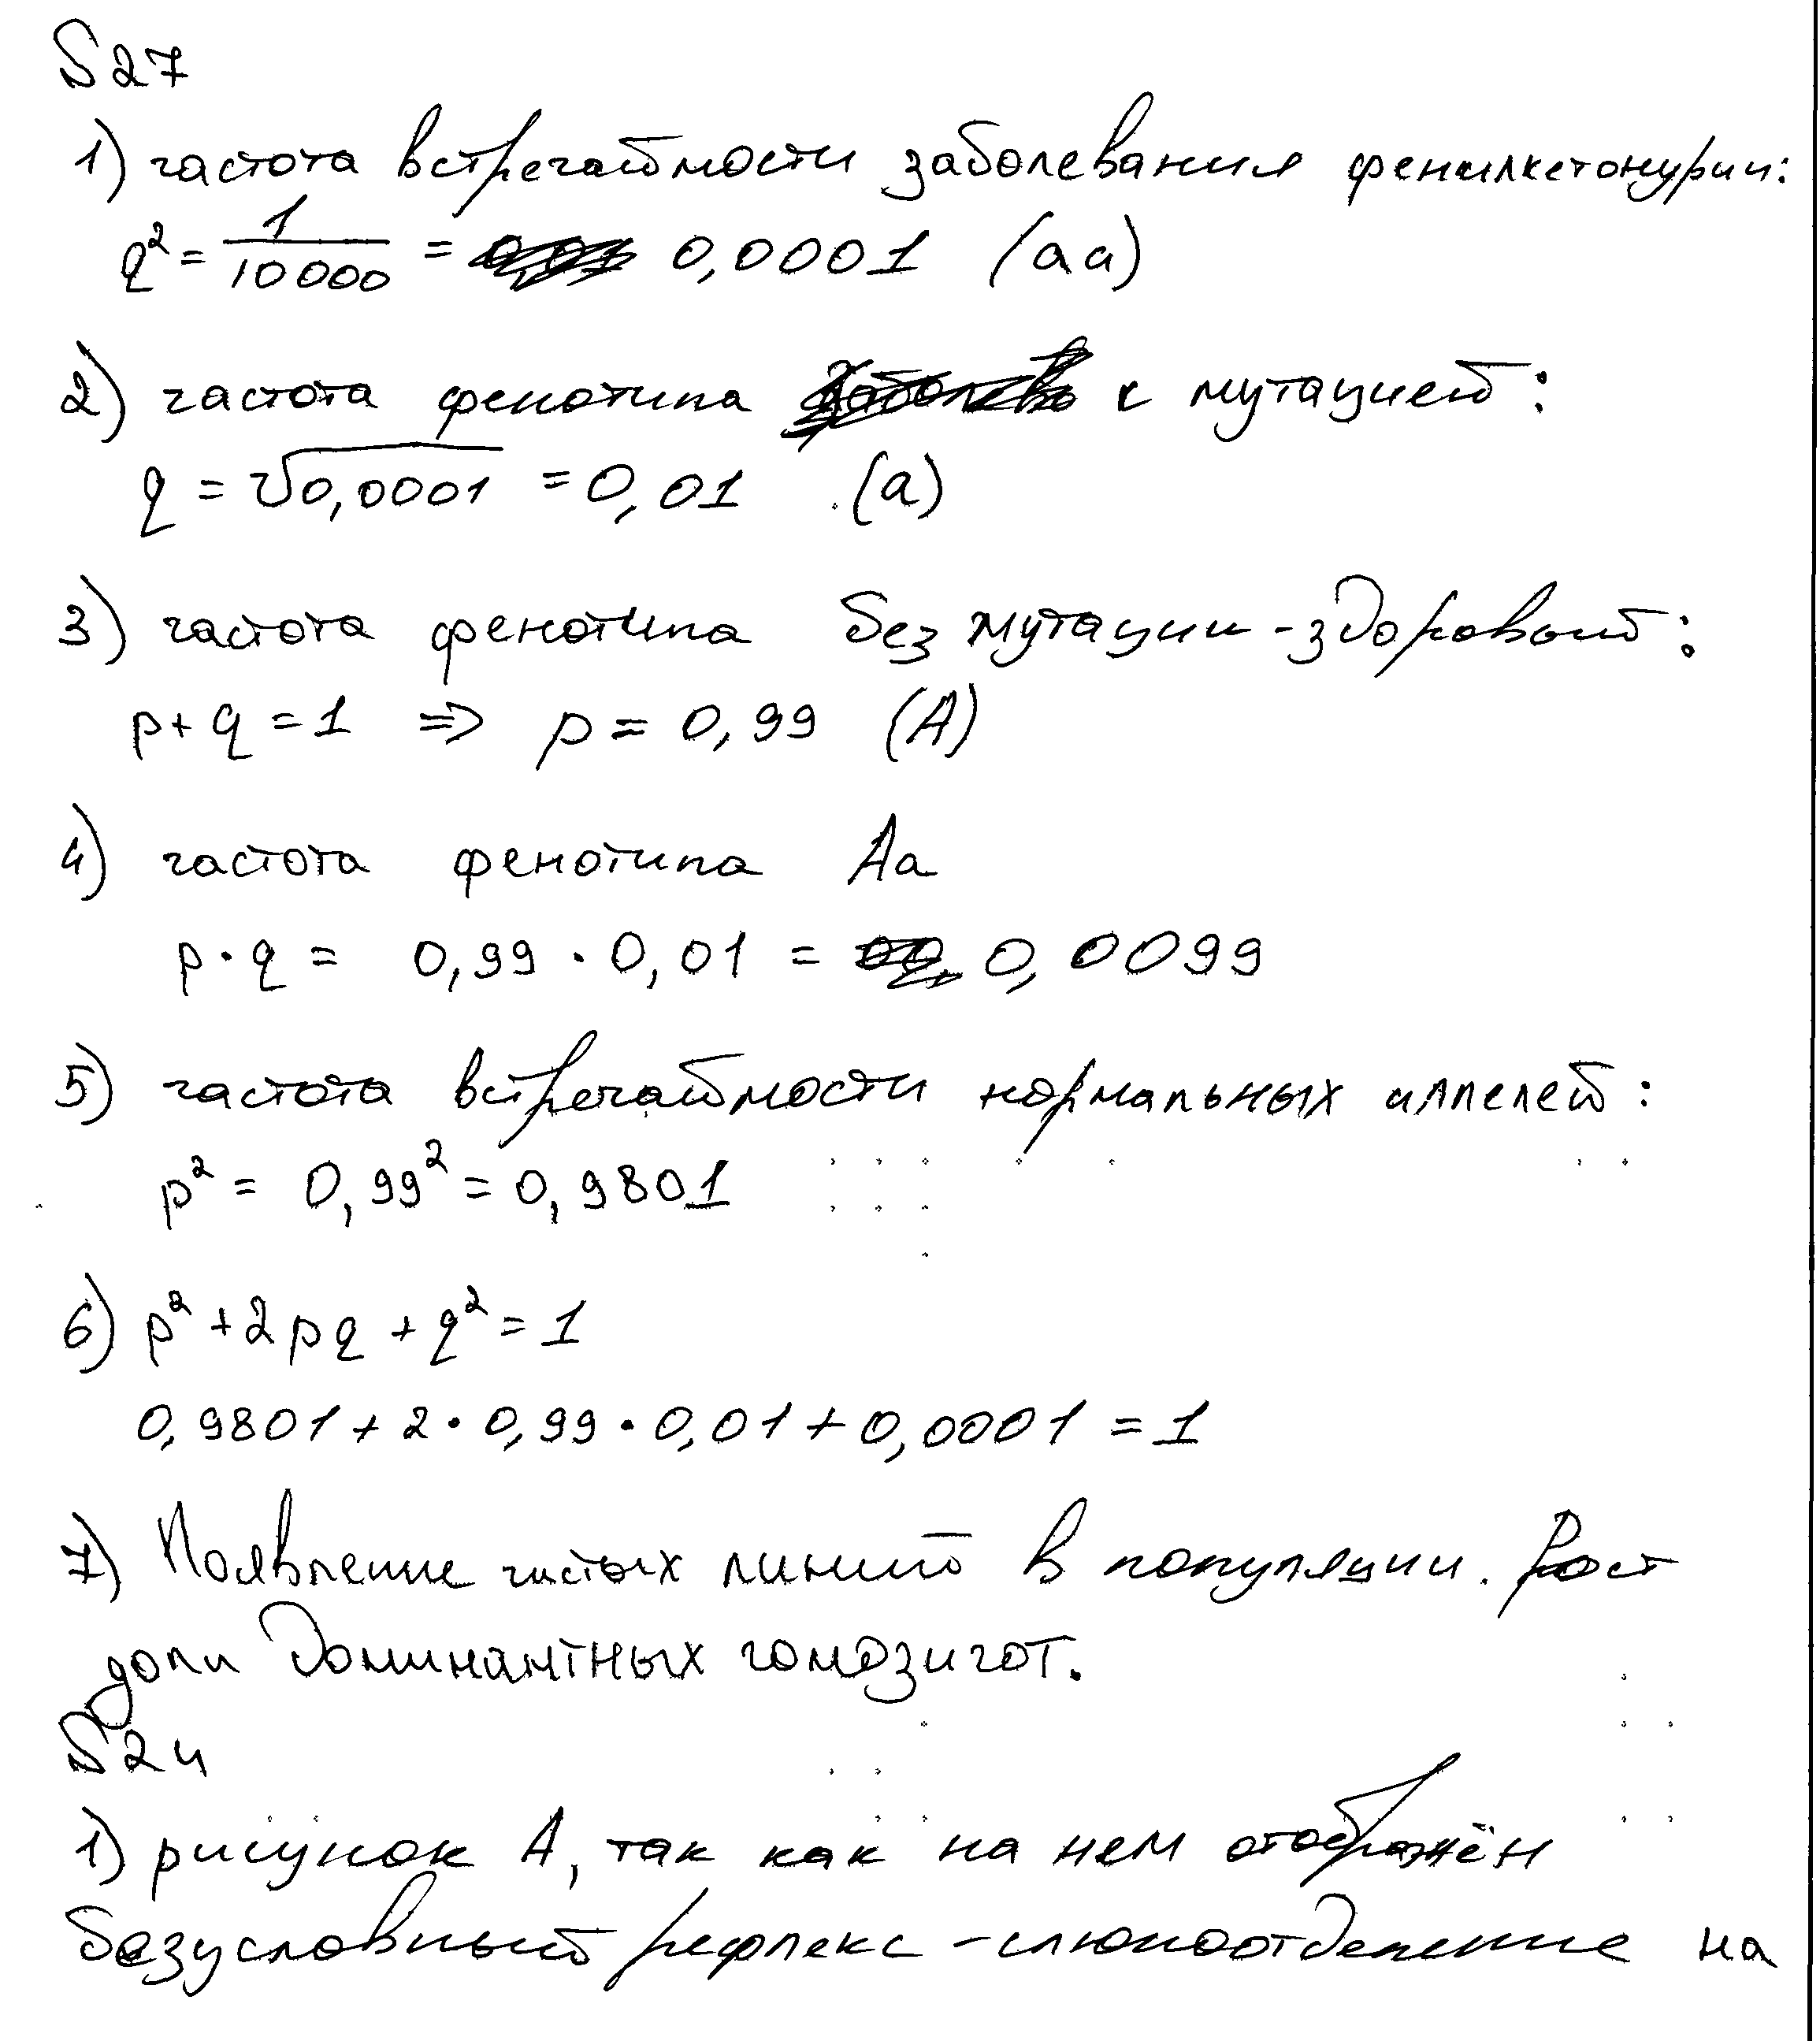 S27
1) частота встречаймости заболевания фенилкетонурии:
q² = 1/10000 = 0,0001 (aa)
2) частота фенотипа с мутацией:
q = √0,0001 = 0,01 (a)
3) частота фенотипа без мутации - здоровый:
p + q = 1 ⇒ p = 0,99 (A)
4) частота фенотипа Aa
p · q = 0,99 · 0,01 = 0,0099
5) частота встречаймости нормальных аллелей:
p² = 0,99² = 0,9801
6) p² + 2pq + q² = 1
0,9801 + 2 · 0,99 · 0,01 + 0,0001 = 1
7) Появление чистых линий в популяции. Рост
доли доминантных гомозигот.
S24
1) рисунок А, так как на нем отображён
безусловный рефлекс - слюноотделение на